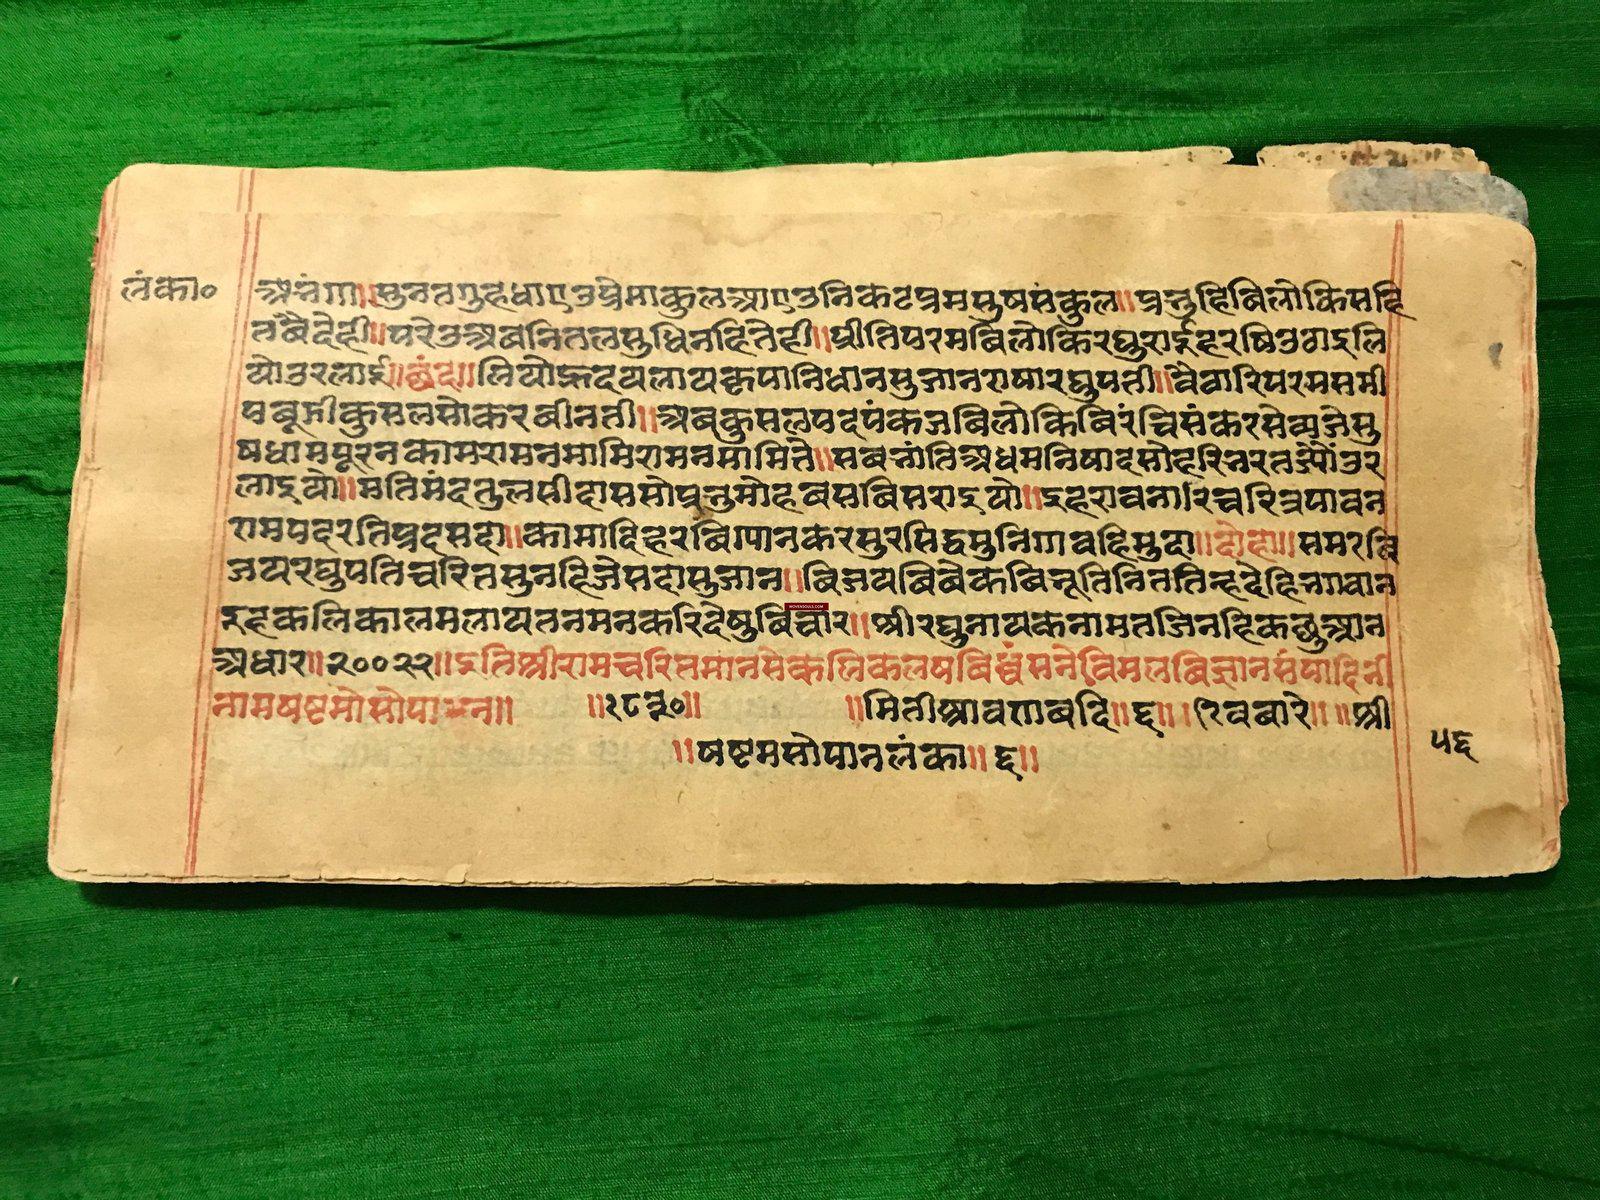 लंका०
अन्नंगा॥सुनतगुहधाएउप्रेमाकुलआएउनिकटप्रमसुषसंकुल॥प्रभुहिबिलोकिसहि
तबैदेही॥परेउअवनितलसुधिनहितेही॥प्रीतिपरमबिलोकिरघुराईहरषिउठाइलि
योउरलाई॥छंद॥लियोह्रदयलायकृपानिधानसुजानरायारघुपती॥बैठारिपरमसमी
पबूजीकुसलसोकरबीनती॥अबकुसलपदपंकजबिलोकिबिरंचिसंकरसेब्यजेसु
षधामपूरनकामरामनमामिरामनमामिते॥सबभांतिअधमनिषादसोहरिभरतज्यौंउर
लाइयो॥मतिमंदतुलसीदाससोप्रभुमोहबसबिसराइयो॥इहरावनारिचरित्रपावन
रामपदरतिप्रदसदा॥कामादिहरबिग्यानकरसुरसिद्धमुनिगावहिमुदा॥दोहा॥समरबि
जयरघुपतिचरितसुनहिजेसदासुजान॥बिजयबिबेकबिभूतिनिततिन्हदेहिभगवान
इहकलिकालमलायतनमनकरिदेषुबिचार॥श्रीरघुनायकनामतजिनहिकछुआन
अधार॥२००२२॥इतिश्रीरामचरितमानसेकलिकलषबिध्वंसनेविमलबिज्ञानसंपादिनी
नामषष्टमोसोपान॥ ॥मितीश्रावणबदि॥६॥रविबारे॥॥श्री
॥षष्टमसोपानलंका॥६॥
५६
WOVENSOULS.COM